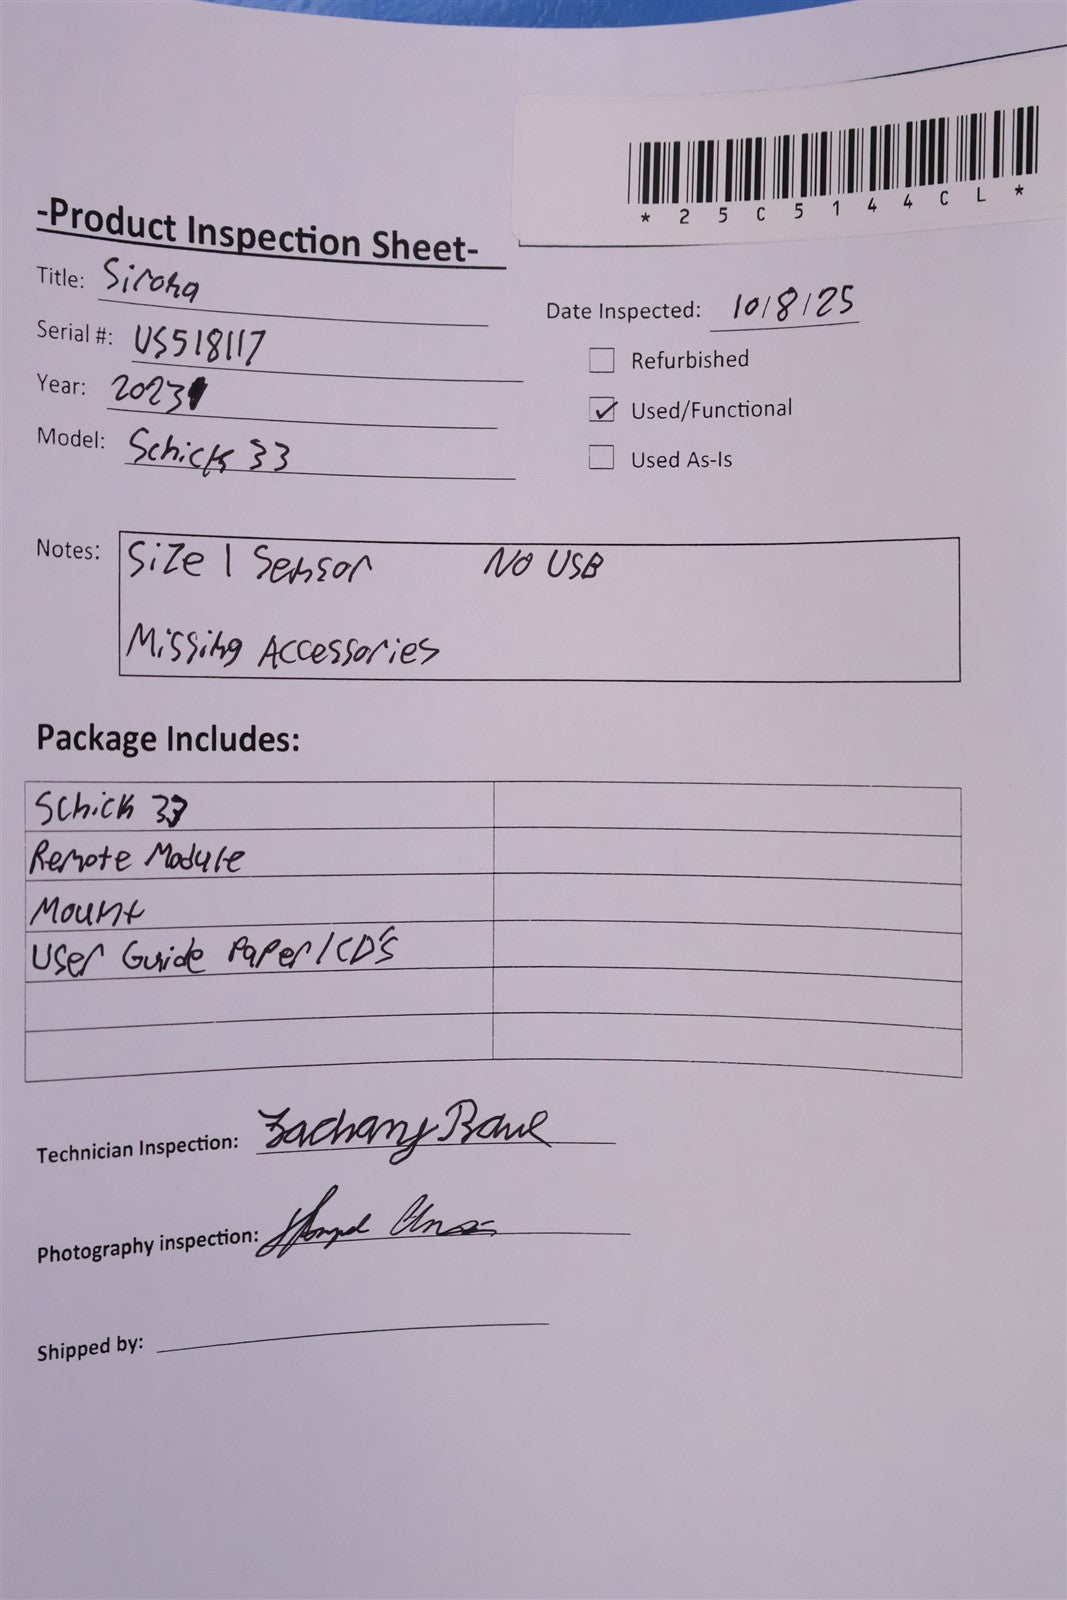 *25C5144CL*
-Product Inspection Sheet-
Title: Sirona
Serial #: US518117
Year: 2023
Model: Schick 33
Date Inspected: 10/8/25
Refurbished
Used/Functional
Used As-Is
Notes: Size 1 Sensor NO USB
Missing Accessories
Package Includes:
Schick 33
Remote Module
Mount
User Guide Paper/CD's
Technician Inspection: Zachary
Photography inspection:
Shipped by: